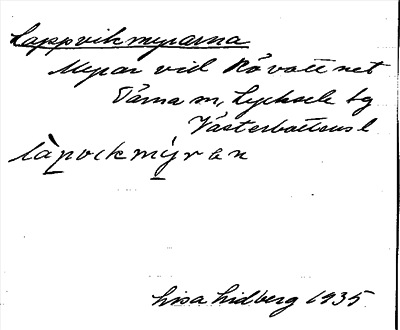 Lappvikmyrarna
Myrar vid Råvattnet
Tärna sn, Lycksele tg
Västerbottens l
làpvikmýran
Lisa Lidberg 1935